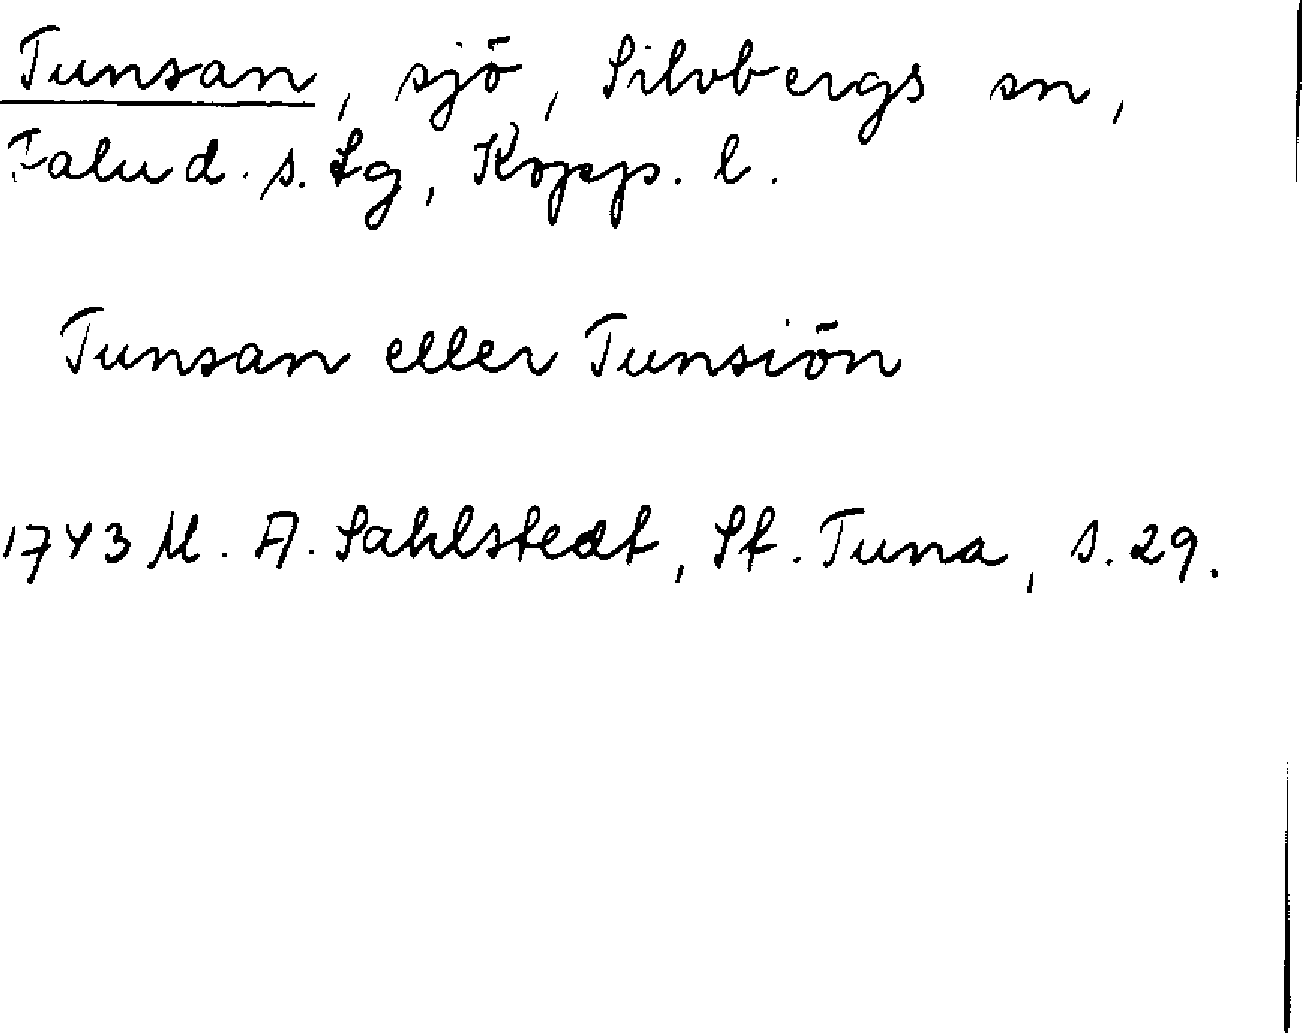 Tunsan, sjö, Silvbergs sn,
Falu d. s. tg, Kopp. l.
Tunsan eller Tunsiön
1743 M. A. Sahlstedt, St. Tuna, s. 29.